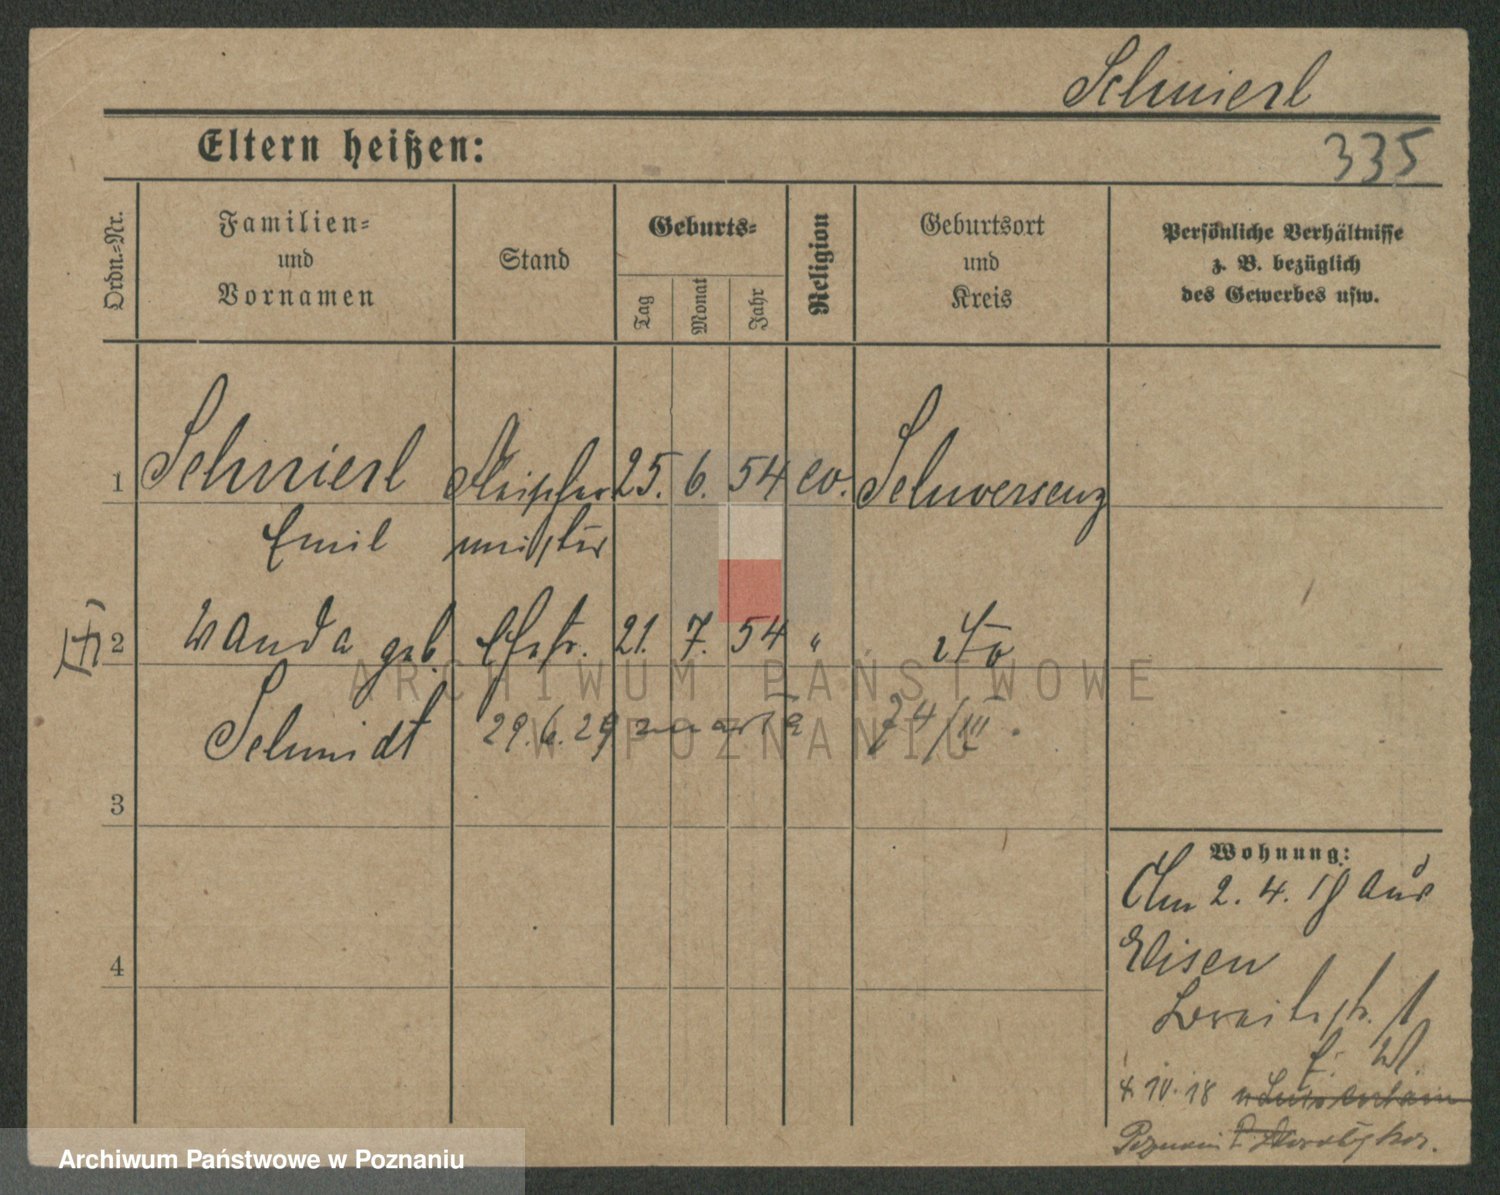 Schmierl
335
Eltern heißen:
Ordn.-Nr.
Familien- und Vornamen
Stand
Geburts-
Tag
Monat
Jahr
Religion
Geburtsort und Kreis
Persönliche Verhältnisse
z. B. bezüglich
des Gewerbes usw.
1 Schmierl 25. 6. 54 ev. Schwersenz
Emil meister
2 Wanda geb. Ehefr. 21. 7. 54 " dto
Schmidt 29.6.29 zmarła 74/III
3
4
Wohnung:
Am 2. 4. 18 aus
Breitestr.
4 IV. 18
Poznań
ARCHIWUM PAŃSTWOWE
W POZNANIU
Archiwum Państwowe w Poznaniu